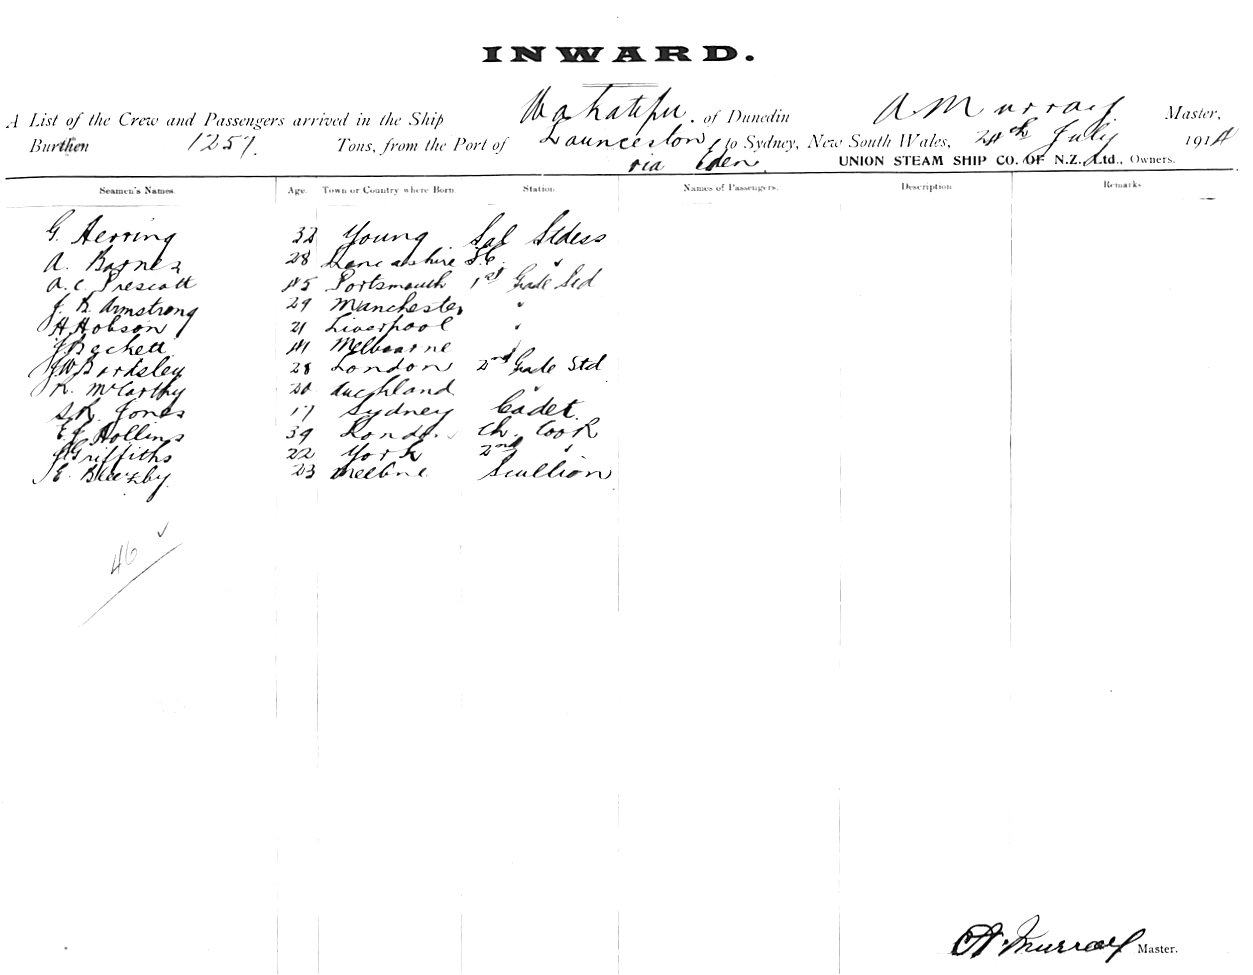 INWARD.
A List of the Crew and Passengers arrived in the Ship Wakatipu. of Dunedin A Murray Master,
Burthen 1257. Tons, from the Port of Launceston, to Sydney, New South Wales, 24th July 1914
via Eden. UNION STEAM SHIP CO. OF N.Z., Ltd., Owners.
Seamen's Names. Age. Town or Country where Born. Station. Names of Passengers. Description Remarks
G. Herring 32 Young Sal Stdess
A. Barnes 28 Lancashire "
A. C. Prescott 45 Portsmouth 1st Grade Std
J. R. Armstrong 29 Manchester "
H. Hobson 21 Liverpool "
J Beckett 44 Melbourne
J. W. Barksley 28 London 2nd Grade Std
R. McCarthy 20 Auckland "
S. R. Jones 17 Sydney Cadet
E J Hollins 39 London Ch. Cook
J Griffiths 22 York 2nd "
E. 23 Melbne Scullion
46 ✓
A. Murray Master.